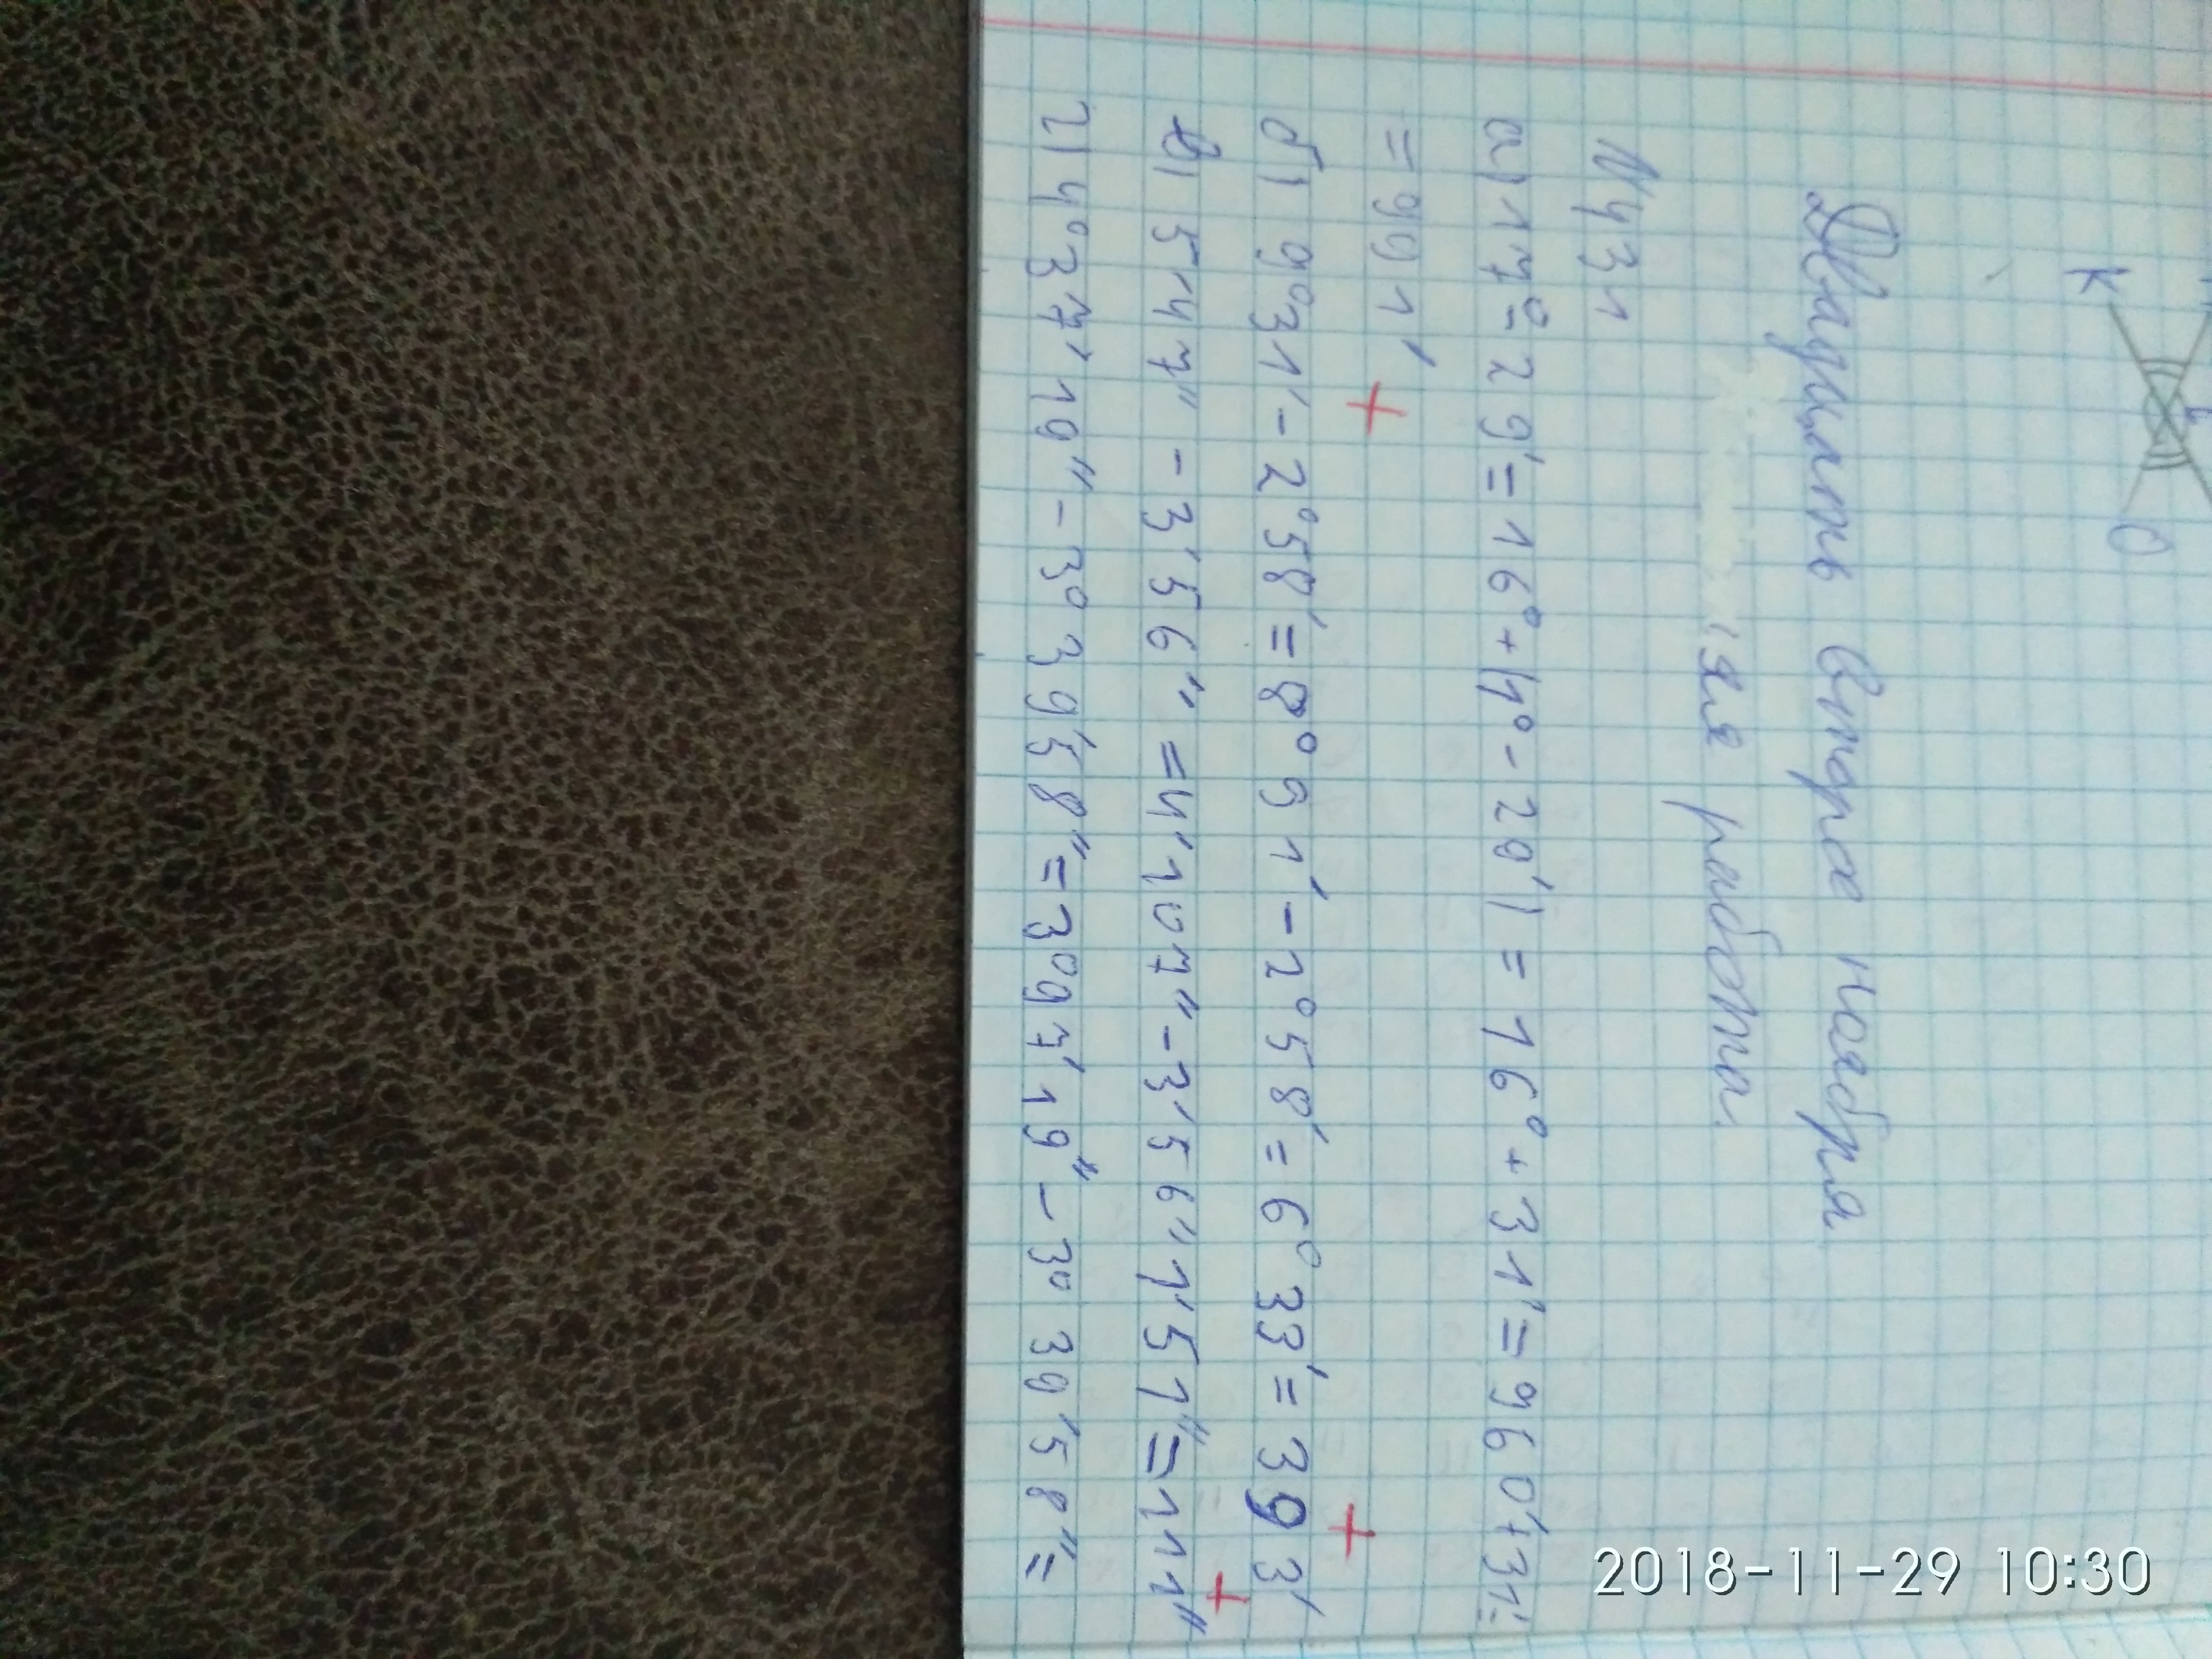 K
O
Двадцать второе ноября
ая работа.
№431
а) 17° - 29' = 16° + (1° - 29') = 16° + 31' = 960' + 31' =
= 991' +
б) 9°31' - 2°58' = 8°91' - 2°58' = 6°33' = 393' +
в) 5'47" - 3'56" = 4'107" - 3'56" 1'51" = 111" +
г) 4°37'19" - 3°39'58" = 3°97'19" - 3°39'58" =
2018-11-29 10:30